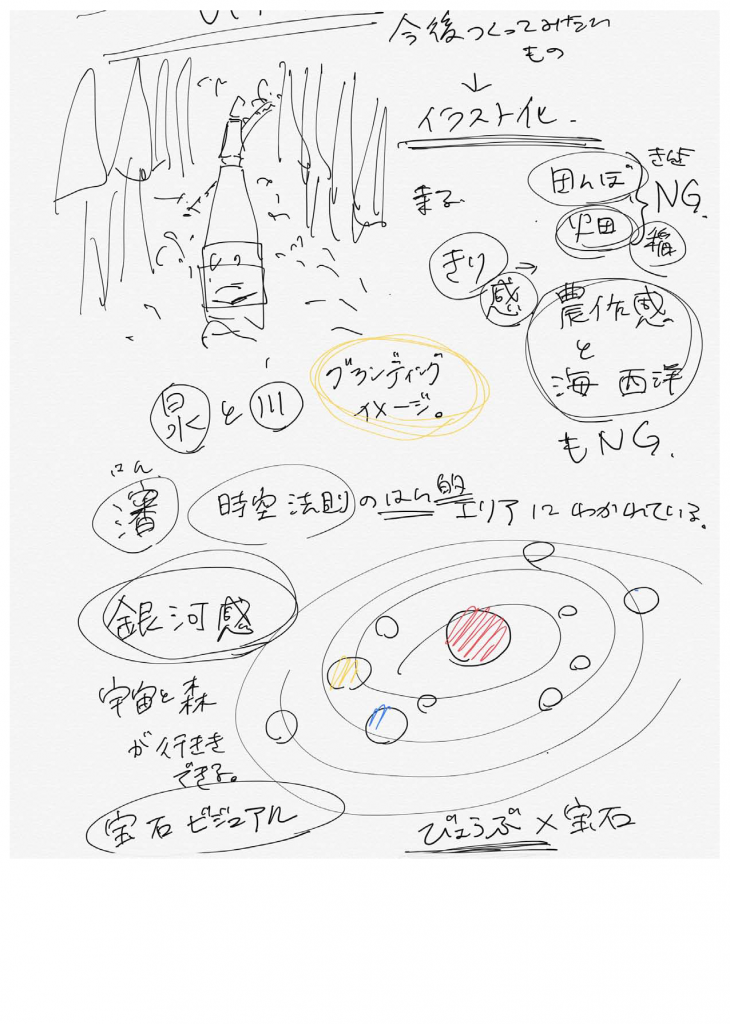 今後つくってみたい
もの
↓
イラスト化.
田んぼ
畑
NG.
稲
きり
感
→
農作感
と
海 西洋
もNG.
ブランディング
イメージ。
泉と川
はん
時空法則のはん的エリアにわかれている。
銀河感
宇宙と森
が行きき
できる。
宝石ビジュアル
びょうぶ×宝石